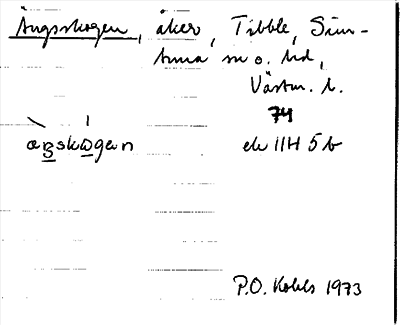 Ängsskogen, åker, Tibble, Sim-
tuna sn o. hd,
Västm. l.
74
ek 11H 5b
P.O. Kohls 1973